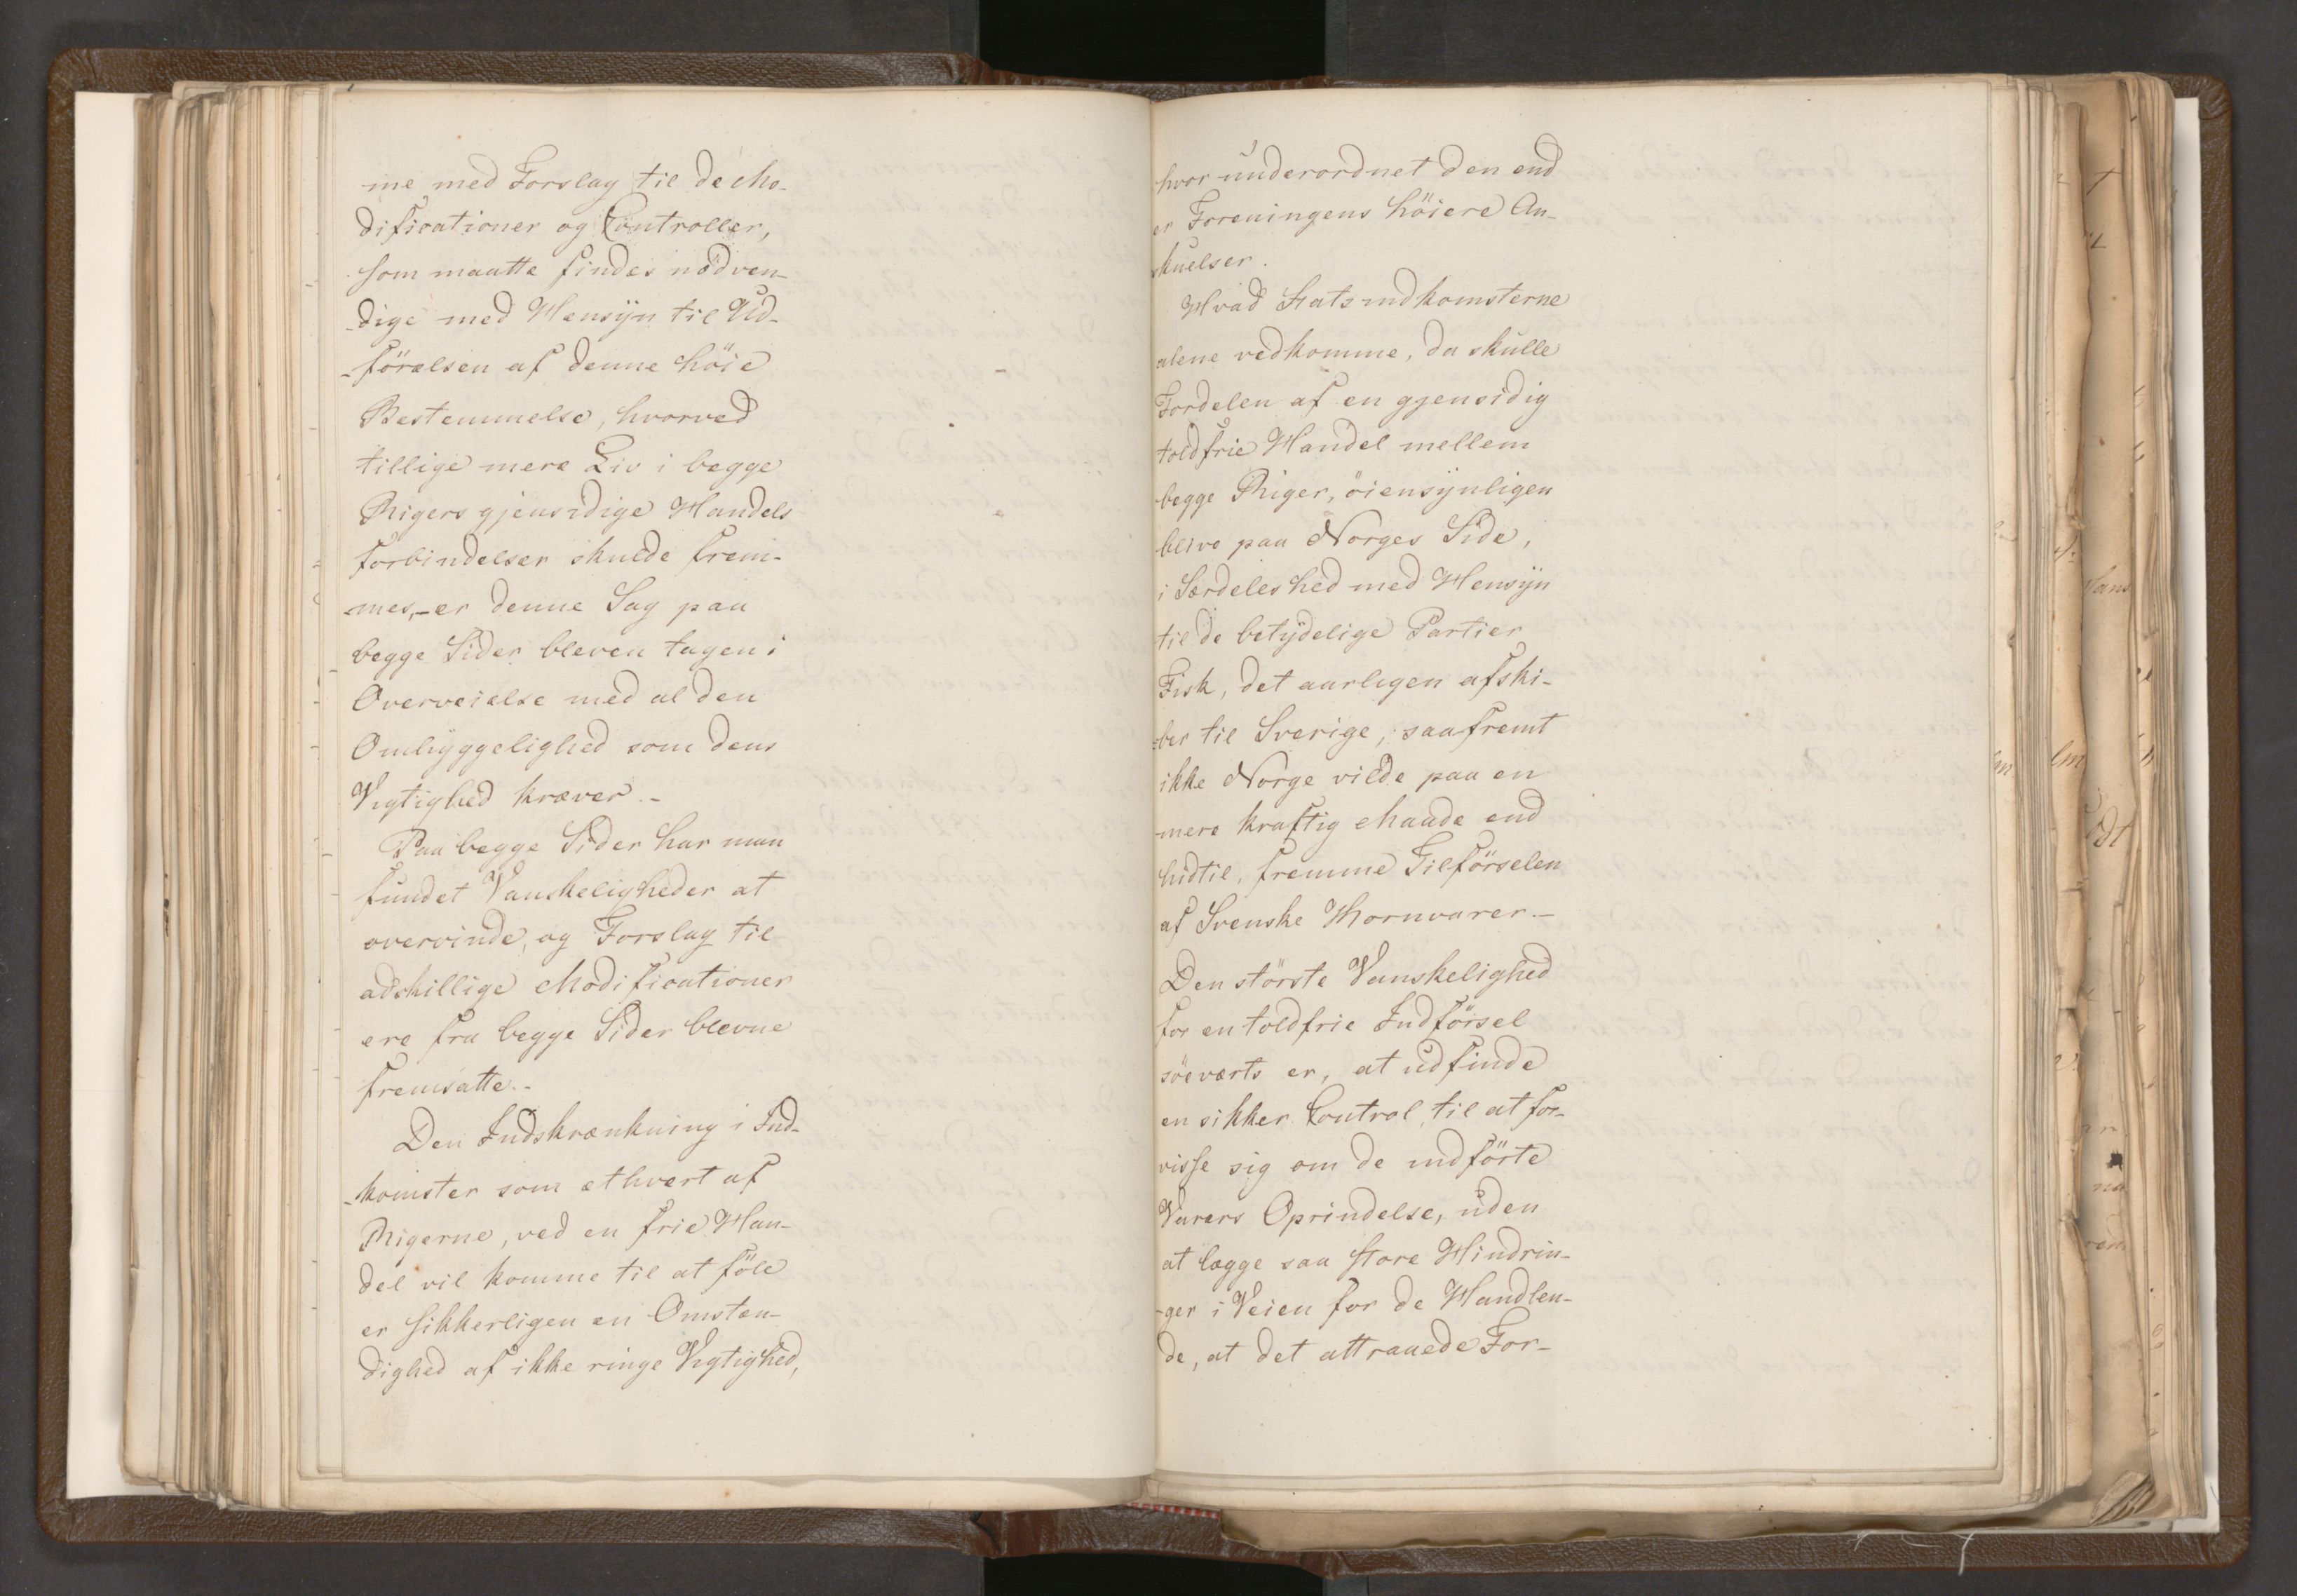 me med Forslag til de Mo-
difirationer og Controller,
som maatte findes nødven-
-dige med Hensÿn til Ud-
-förelsen af denne höie
Bestemmelse, hvorved
tillige mere Liv i begge
Rigers gjensidige Handels
forbindelser skulde frem-
-mes,- er denne Sag paa
begge Sider bleven tagen i
Overveielse med al den
Omhÿggelighed som dens
Vigtighed kræver.-
Paa begge Sider har man
fundet Vanskeligheder at
overvinde, og Forslag til
adskillige Modificationer
ere fra begge Sider blevne
fremsatte.-
Den Indskrænkning i Ind-
-komster som ethvert af
Rigerne, ved en frie Han-
del vil komme til at föle
er sikkerligen en Omstæn-
dighed af ikke ringe Vigtighed,
hvor underordnet den end
er Foreningens höiere An-
skuelser.
Hvad Statsindkomsterne
alene vedkomme, da skulle
Fordelen af en gjensidig
toldfrie Handel mellem
begge Riger, öiensÿnligen
blive paa Norges Side,
i Særdeleshed med Hensÿn
til de betÿdelige Partier
Fisk, det aarligen afski-
-ber til Sverige, saafremt
ikke Norge vilde paa en
mere kraftig Maade end
hidtil, fremme Tilförselen
af Svenske Kornvarer.-
Den störste Vanskelighed
for en toldfrie Indförsel
söeværts er, at udfinde
en sikker Control, til at for-
visse sig om de indförte
Varers Oprindelse, uden
at lægge saa store Hindrin-
-ger i Veien for de Handlen-
de, at det attraaede For-